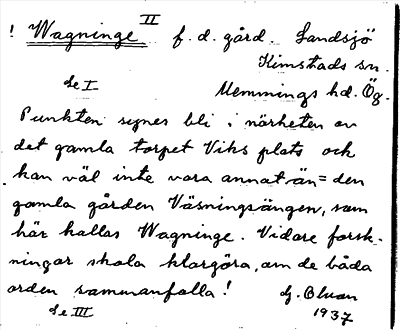 ! Wagninge II f. d. gård. Landsjö
Kimstads sn.
Se I Memmings hd. Ög.
Punkten synes bli i närheten av
det gamla torpet Viks plats och
kan väl inte vara annat än = den
gamla gården Väsningsängen, som
här kallas Wagninge. Vidare forsk-
ningar skola klargöra, om de båda
orden sammanfalla! G. Bluan
Se III 1937